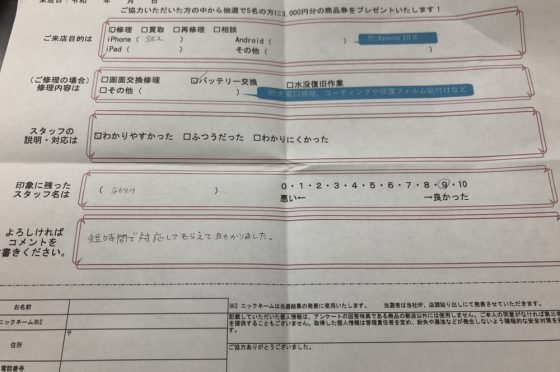 来店日：令和　年　月　日
ご協力いただいた方の中から抽選で5名の方に3,000円分の商品券をプレゼントいたします！
ご来店目的は
☑修理 □買取 □再修理 □相談
iPhone（ SE2 ） Android（ ）
iPad（ ） その他（ ）
例:Xperia 10 II
（ご修理の場合）
修理内容は
□画面交換修理 ☑バッテリー交換 □水没復旧作業
□その他（ ）
コーティングや保護フィルム貼付けなど
スタッフの
説明・対応は
☑わかりやすかった □ふつうだった □わかりにくかった
印象に残った
スタッフ名は
（ ）
0・1・2・3・4・5・6・7・8・9・10
悪い← →良かった
よろしければ
コメントを
書きください。
短時間で対応してもらえて良かりました。
お名前
ニックネーム※2
住所
〒
電話番号
※2 ニックネームは当選結果の発表に使用いたします。 当選者は当社HP、店頭貼り出しにて発表させていただきます。
記載していただいた個人情報は、アンケートの回答特典である商品の郵送以外には使用しません。ご本人の同意がなければ第三者
を提供することもございません。取得した個人情報は管理責任者を定め、紛失や漏洩などが発生しないよう積極的な安全対策を
す。
ご協力ありがとうございました。